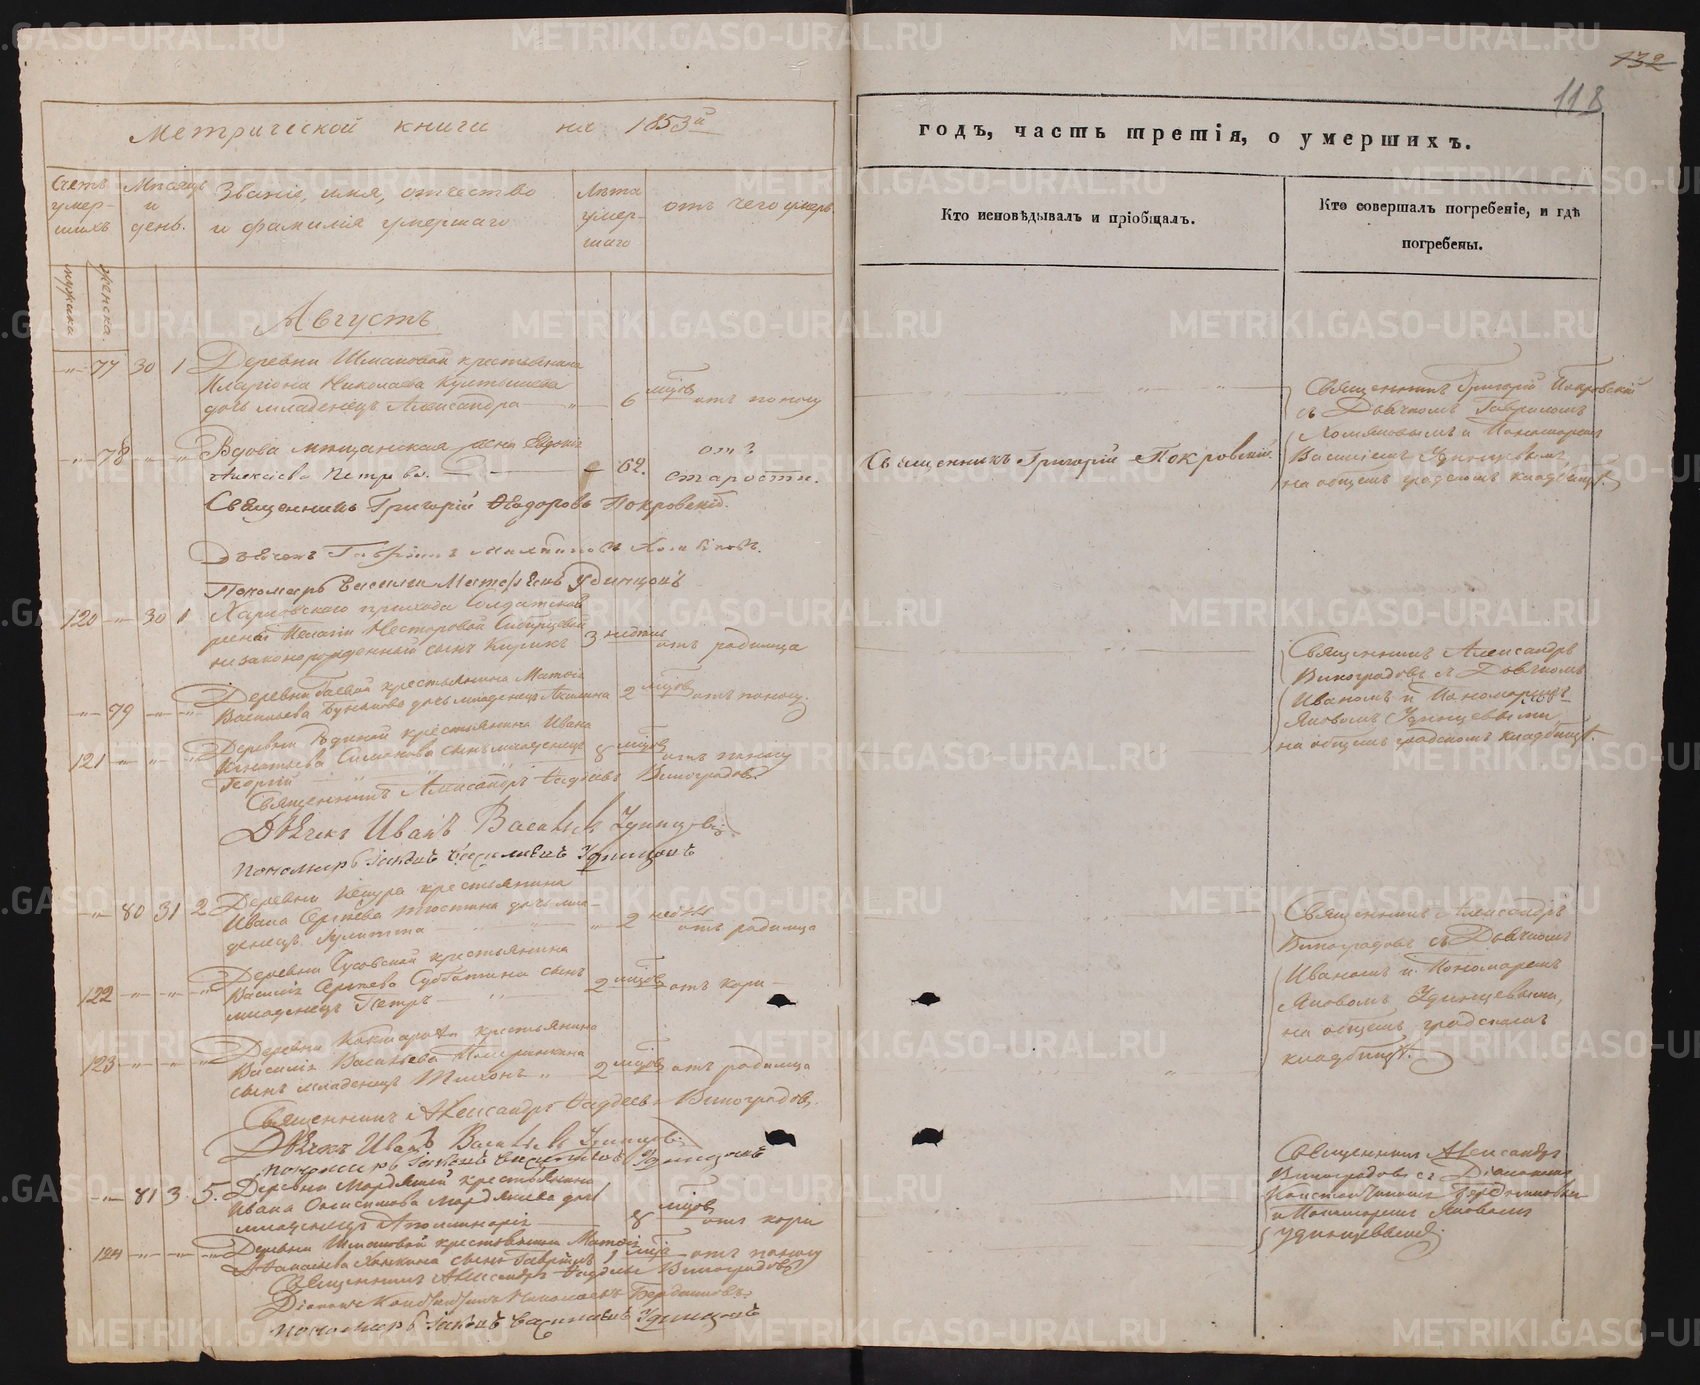 132
118
Метрической книги на 1853й
годъ, часть третія, о умершихъ.
Счетъ умер-шихъ
Мѣсяцъ и день.
Званіе, имя, отчество и фамилія умершаго
Лѣта умер-шаго
отъ чего умеръ.
Кто исповѣдывалъ и пріобщалъ.
Кто совершалъ погребеніе, и гдѣ
погребены.
мужска
женска.
Августъ
77 30 1 Деревни Шмаковой крестьянина
Иларіона Николаева
дочь младенецъ Александра 6 мцовъ отъ поносу
Священникъ Григорій Покровскій
съ Дьячкомъ Гавриломъ
и Пономаремъ
Василіемъ Удинцевымъ
на общемъ градскомъ кладбищѣ.
78 Вдова мѣщанская жена Евдокія
Алексіева Петрова. 62. отъ
старости.
Священникъ Григорій Покровскій
Священникъ Григорій Ѳеодоровъ Покровскій.
Дьячекъ Гавріилъ
Пономарь Василій Матфеевъ Удинцовъ
120 30 1 прихода Солдатской
Пелагіи Несторовой
незаконорожденный сынъ Кирикъ 3 недѣль отъ родимца
Священникъ Александръ
Виноградовъ съ Дьячкомъ
Иваномъ и Пономаремъ
Яковомъ Удинцевыми
на общемъ градскомъ кладбищѣ.
79 Деревни Гаевой крестьянина Матвія
Васильева Бунькова дочь младенецъ Акилина 2 мцовъ отъ поносу.
121 Деревни крестьянина Ивана
Игнатьева Симанова сынъ младенецъ 8 мцовъ отъ поносу
Георгій
Священникъ Александръ Фадѣевъ Виноградовъ
Дьячекъ Иванъ Васильевъ Удинцовъ
пономарь Іаковъ Васильевъ Удинцовъ
80 31 2 Деревни Кекура крестьянина
Ивана Сергѣева дочь мла-
денецъ Іулитта 2 недѣль отъ родимца
Священникъ Александръ
Виноградовъ съ Дьячкомъ
Иваномъ и Пономаремъ
Яковомъ Удинцевыми,
на общемъ градскомъ
кладбищѣ.
122 Деревни Чусовской крестьянина
Василія Сергѣева Субботина сынъ
младенецъ Петръ 2 мцовъ отъ кори
123 Деревни Кокшарова крестьянина
Василія Васильева
сынъ младенецъ Тихонъ 2 мцовъ отъ родимца
Священникъ Александръ Фаддеевъ Виноградовъ.
Дьячекъ Иванъ Васильевъ Удинцовъ
пономарь Іаковъ Васильевъ Удинцовъ
81 3 5. Деревни Мордяшей крестьянина
Ивана Онисимова Мордяшева дочь
младенецъ Аполлинарія 8 мцовъ отъ кори
Священникъ Александръ
Виноградовъ съ Діакономъ
Константиномъ Бердниковымъ
и Пономаремъ Яковомъ
Удинцевымъ.
124 Деревни Шмаковой крестьянина Матвія
сынъ Гавріилъ 1 мца отъ поносу
Священникъ Александръ Фаддеевъ Виноградовъ
Діаконъ Константинъ Николаевъ Бердниковъ.
пономарь Іаковъ Васильевъ Удинцовъ